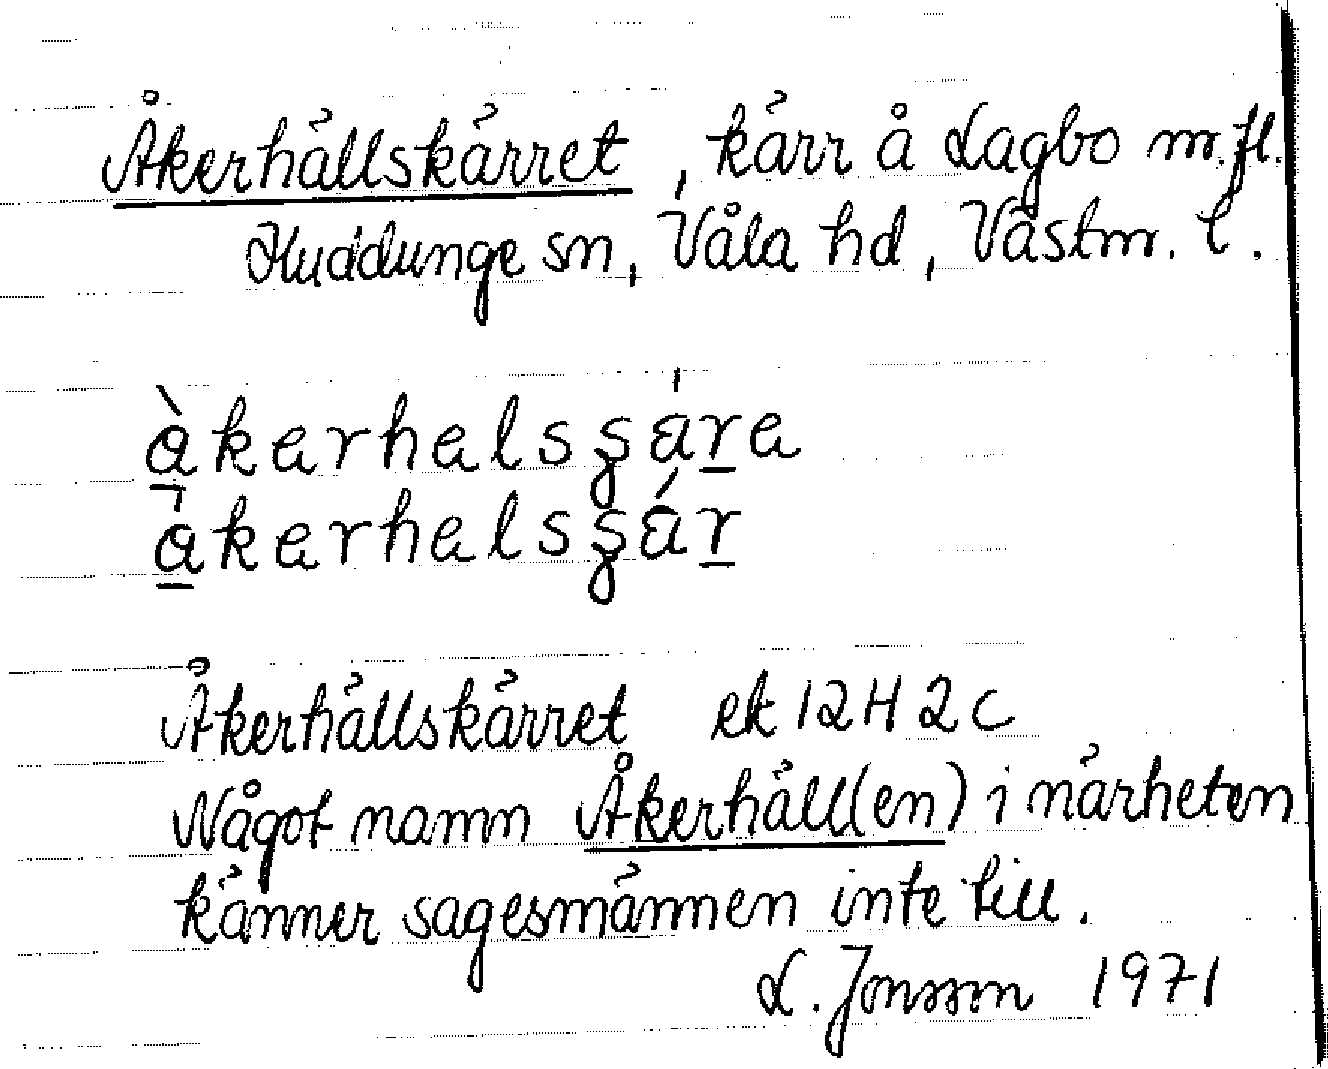 Åkerhällskärret, kärr å Lagbo m.fl.
Huddunge sn, Våla hd, Västm. l.
àkerhelsʂára
àkerhelsʂár
Åkerhällskärret ek 12H2c
Något namn Åkerhäll(en) i närheten
känner sagesmännen inte till.
L. Jonsson 1971